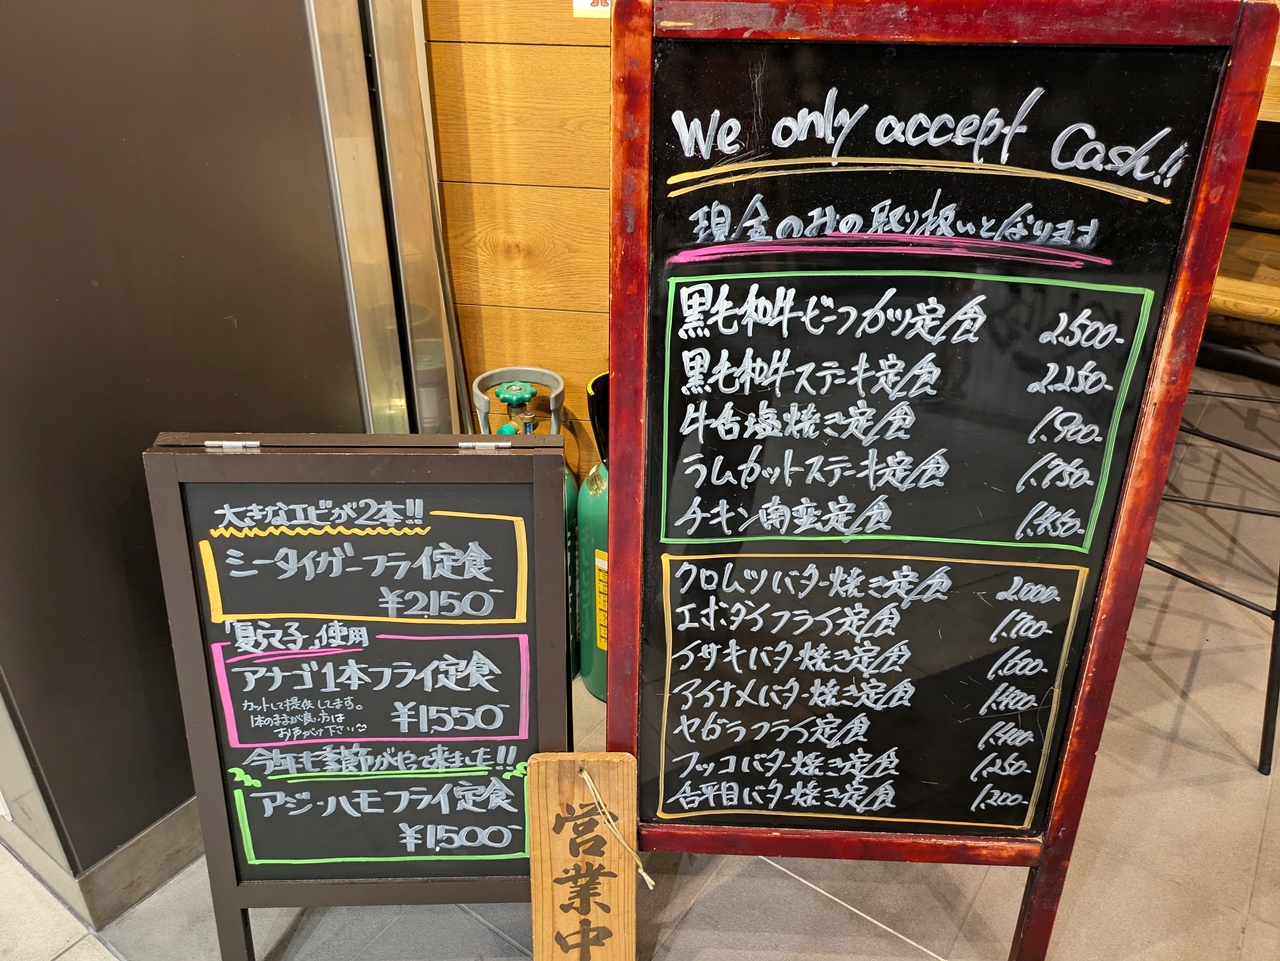 大きなエビが2本!!
シータイガーフライ定食
¥2,150-
「夏六子」使用
アナゴ1本フライ定食
カットして提供してます。
1本のままが良い方は
お申し付け下さい
¥1,550-
今年も季節がやって来ました!!
アジ・ハモフライ定食
¥1,500-
営業中
We only accept Cash!!
現金のみの取り扱いとなります
黒毛和牛ビーフカツ定食 2,500-
黒毛和牛ステーキ定食 2,250-
牛舌塩焼き定食 1,900-
ラムカットステーキ定食 1,750-
チキン南蛮定食
クロムツバター焼き定食 2,000-
エボダイフライ定食 1,700-
イサキバター焼き定食 1,600-
アイナメバター焼き定食 1,400-
ヤガラフライ定食 1,400-
フッコバター焼き定食 1,250-
舌平目バター焼き定食 1,200-